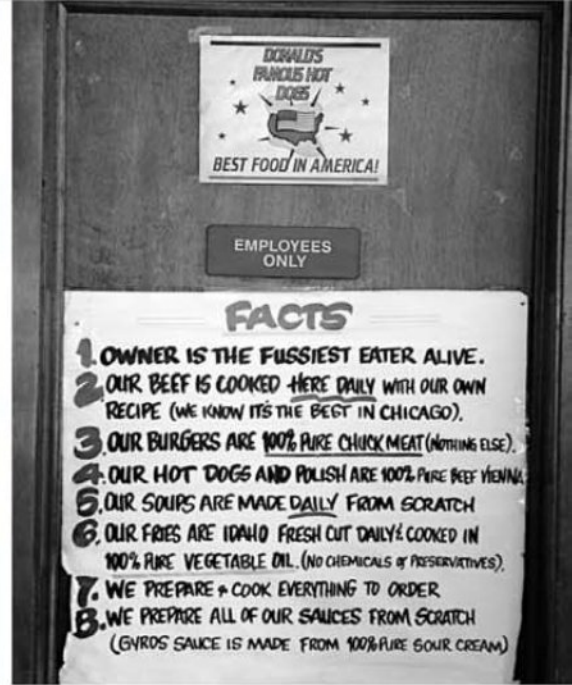 DONALD'S
FAMOUS HOT
DOGS
BEST FOOD IN AMERICA!
EMPLOYEES
ONLY
FACTS
1. OWNER IS THE FUSSIEST EATER ALIVE.
2. OUR BEEF IS COOKED HERE DAILY WITH OUR OWN
RECIPE (WE KNOW IT'S THE BEST IN CHICAGO).
3. OUR BURGERS ARE 100% PURE CHUCK MEAT (NOTHING ELSE).
4. OUR HOT DOGS AND POLISH ARE 100% PURE BEEF VIENNA
5. OUR SOUPS ARE MADE DAILY FROM SCRATCH
6. OUR FRIES ARE IDAHO FRESH CUT DAILY & COOKED IN
100% PURE VEGETABLE OIL. (NO CHEMICALS or PRESERVATIVES).
7. WE PREPARE & COOK EVERYTHING TO ORDER
8. WE PREPARE ALL OF OUR SAUCES FROM SCRATCH
(GYROS SAUCE IS MADE FROM 100% PURE SOUR CREAM)